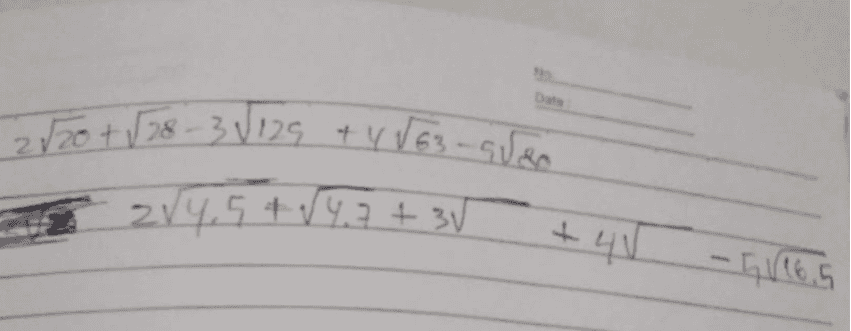 No.
Date :
2√20 + √28 - 3√125 + 4√63 - 5√80
2√4.5 + √4.7 + 3√ + 4√ - 5√16.5